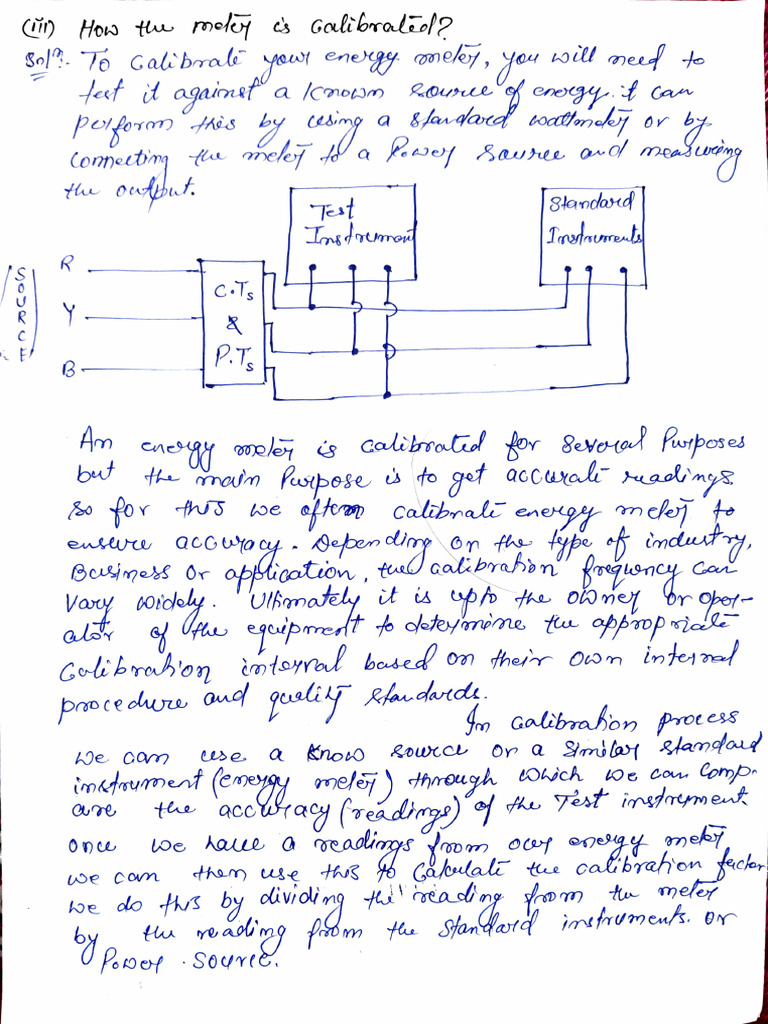 (iii) How the meter is Calibrated?
Soln. To Calibrate your energy meter, you will need to
test it against a known source of energy. it can
perform this by using a standard wattmeter or by
connecting the meter to a Power source and measuring
the output.
Test
Instrument
Standard
Instruments
SOURCE
R
Y
B
C.Ts
&
P.Ts
An energy meter is calibrated for several Purposes
but the main Purpose is to get accurate readings.
so for this we often calibrate energy meter to
ensure accuracy. Depending on the type of industry,
Business or application, the calibration frequncy can
vary widely. Ultimately it is upto the owner or oper-
ator of the equipment to determine the appropriate
Calibration interval based on their own internal
procedure and quality standards.
In calibration process
we can use a know source or a similar standard
instrument (energy meter) through which we can comp-
are the accuracy (readings) of the Test instrument
once we have a readings from our energy meter
we can then use this to Calculate the calibration factor
we do this by dividing the reading from the meter
by the reading from the standard instruments. or
Power source.